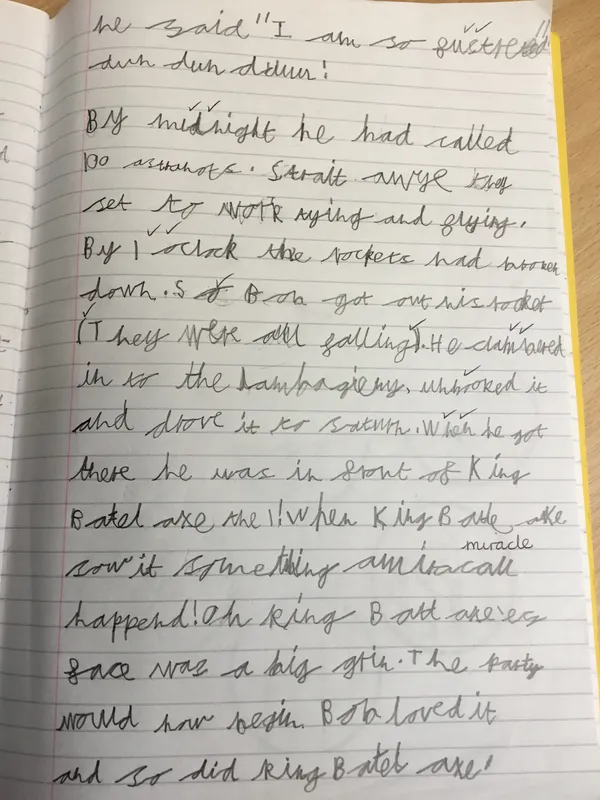 he said "I am so gustrered"
duh duh dduur!
By midnight he had called
100 astranots. Strait awye they
set to work tying and glying.
By 1 oclock the rockets had broken
down. So Bob got out his rocket
(They were all falling). He clambered
in to the, unhooked it
and drove it to saturn. When he got
there he was in front of King
Batel axe the 1! When King Batle axe
sow it something amiracau
miracle
happend! On King Batt axe'es
face was a big grin. The party
would now begin. Bob loved it
and so did King Batel axe!